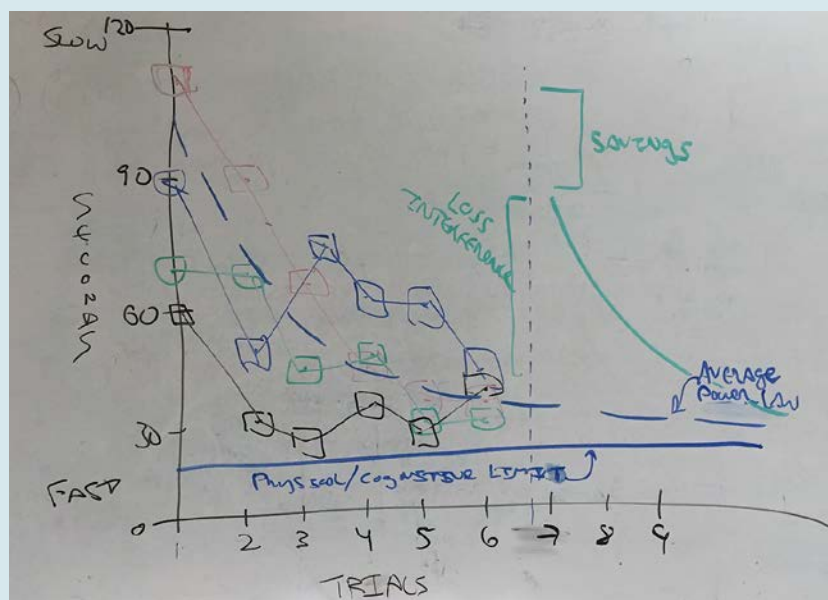 SLOW 120
90
SECONDS
60
30
FAST
0
SAVINGS
LOSS
INTERFERENCE
AVERAGE
POWER LAW
PHYSICAL/COGNITIVE LIMIT
1 2 3 4 5 6 7 8 9
TRIALS